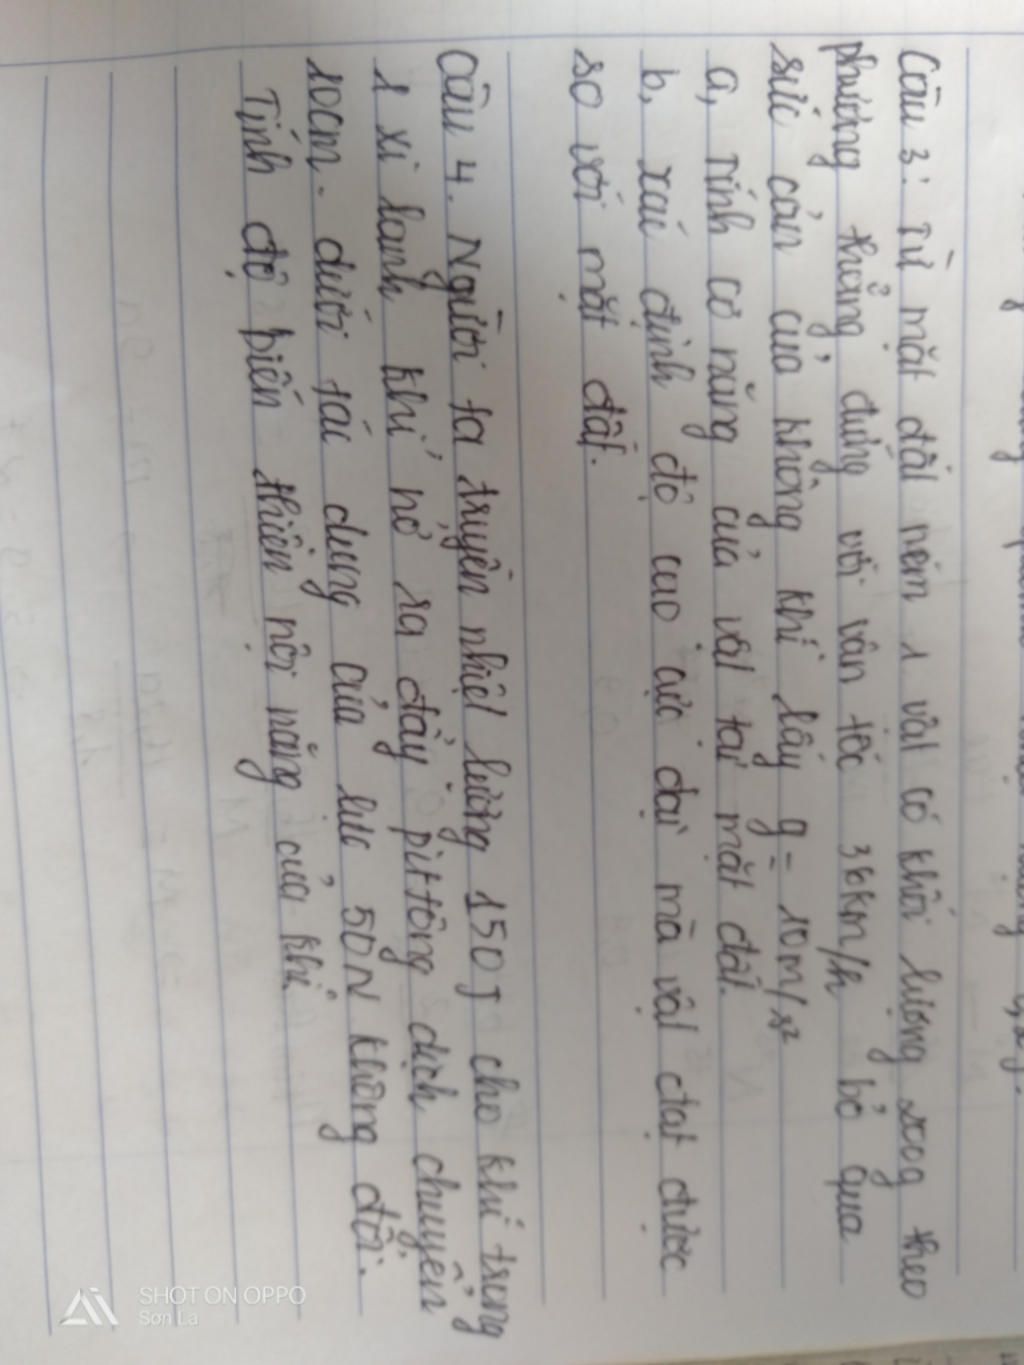 Câu 3: Từ mặt đất ném 1 vật có khối lượng 200g theo
phương thẳng đứng với vận tốc 36km/h bỏ qua
sức cản của không khí lấy g = 10m/s²
a, Tính cơ năng của vật tại mặt đất.
b, xác định độ cao cực đại mà vật đạt được
so với mặt đất.
Câu 4. Người ta truyền nhiệt lượng 150J cho khí trong
1 xi lanh khí nở ra đẩy pittông dịch chuyển
10cm. dưới tác dụng của lực 50N không đổi.
Tính độ biến thiên nội năng của khí.
SHOT ON OPPO
Sơn La